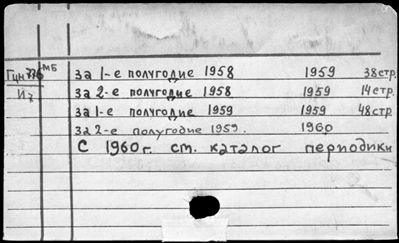 МБ
за 1-е полугодие 1958 1959 38стр.
за 2-е полугодие 1958 1959 14стр.
Из
за 1-е полугодие 1959 1959 48стр.
за 2-е полугодие 1959. 1960
С 1960г. см. каталог периодики